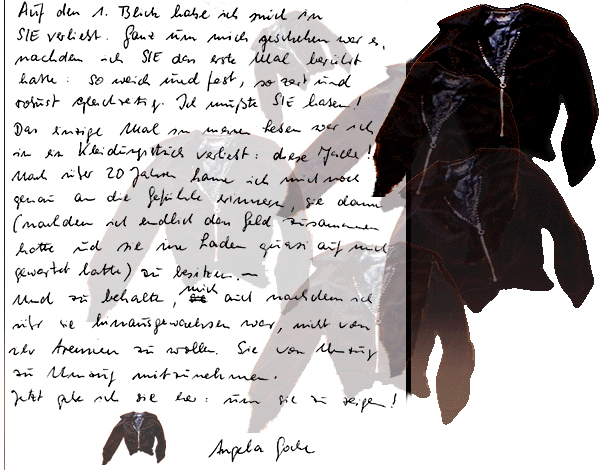 Auf den 1. Blick habe ich mich in
SIE verliebt. Ganz um mich geschehen war es,
nachdem ich SIE das erste Mal berührt
hatte: so weich und fest, so zart und
robust gleichzeitig. Ich mußte SIE haben!
Das einzige Mal in meinem Leben war ich
in ein Kleidungsstück verliebt: diese Jacke!
Nach über 20 Jahren kann ich mich noch
genau an die Gefühle erinnern, sie dann
(nachdem ich endlich das Geld zusammen
hatte und sie im Laden quasi auf mich
gewartet hatte) zu besitzen.–
Und zu behalten, mich auch nachdem ich
über sie hinausgewachsen war, nicht von
ihr trennen zu wollen. Sie von Umzug
zu Umzug mitzunehmen.
Jetzt gebe ich sie her: um sie zu zeigen!
Angela